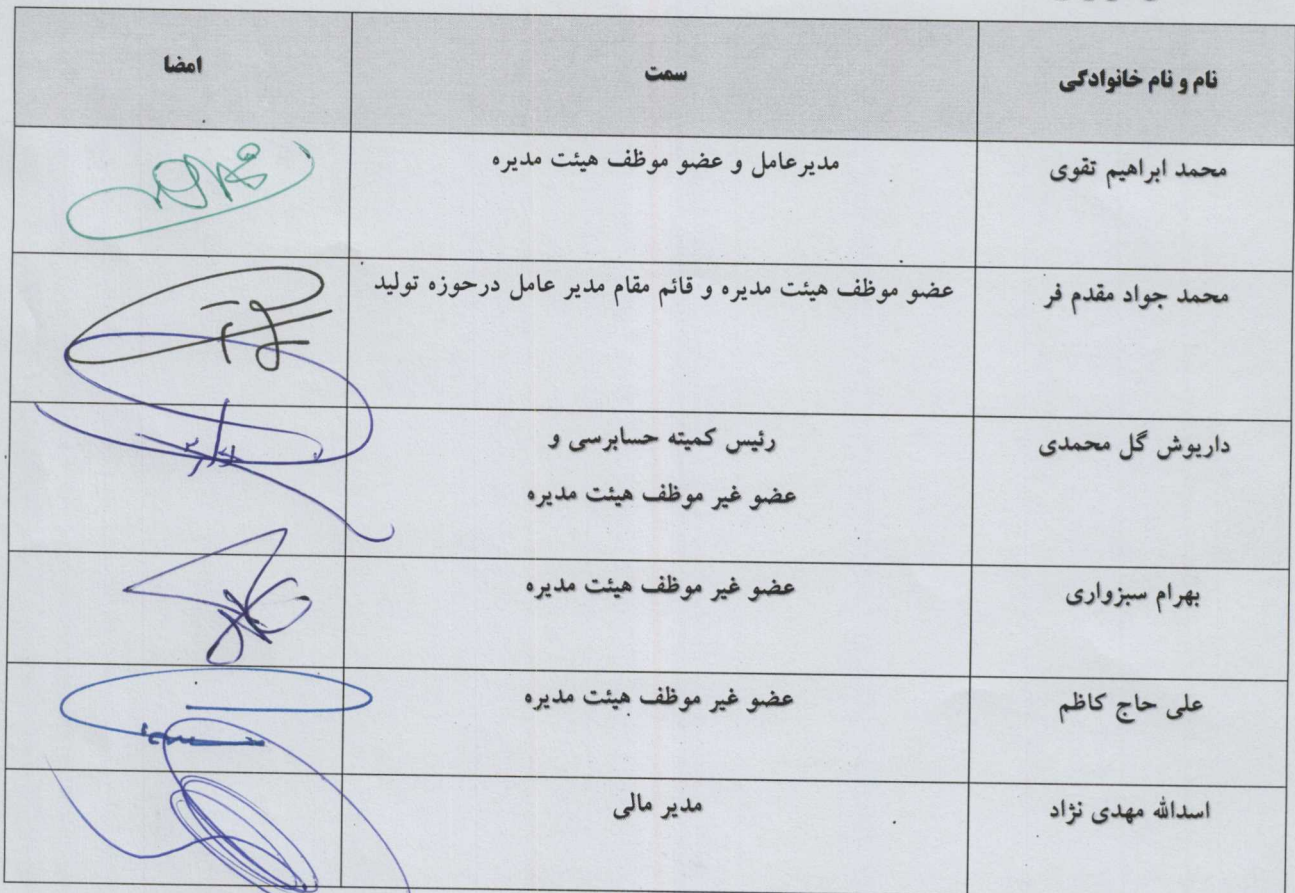 نام و نام خانوادگی سمت امضا
محمد ابراهیم تقوی مدیرعامل و عضو موظف هیئت مدیره
محمد جواد مقدم فر عضو موظف هیئت مدیره و قائم مقام مدیر عامل درحوزه تولید
داریوش گل محمدی رئیس کمیته حسابرسی و
عضو غیر موظف هیئت مدیره
بهرام سبزواری عضو غیر موظف هیئت مدیره
علی حاج کاظم عضو غیر موظف هیئت مدیره
اسدالله مهدی نژاد مدیر مالی